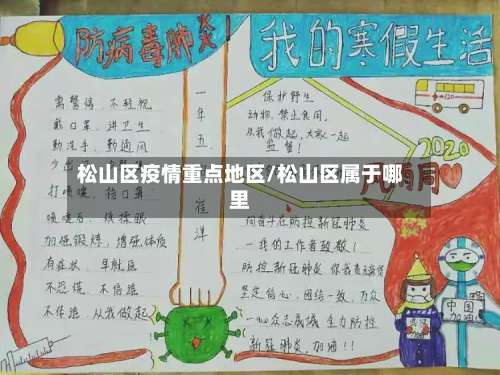 防病毒肺炎!
我的寒假生活
需警惕、不轻视
戴口罩、讲卫生
勤洗手、勤通风
打喷嚏、捂口鼻
加强锻炼,增强体质
有症状、早就医
不恐慌、不传谣
不传谣、从我做起
一年五
崔洋
保护野生
动物,禁止食用。
从我做起,大家一起
监督!
2020
松山区疫情重点地区/松山区属于哪
里
风雨同
向奋斗在防控新冠肺炎
一线的工作者致敬!
防控新冠肺炎
坚定信心,团结一致,万众
一心众志成城 全力防控
新冠肺炎,加油!!
武汉
中国
加油